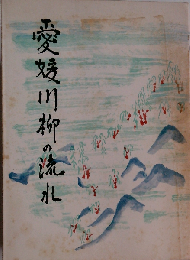 愛媛川柳の流れ